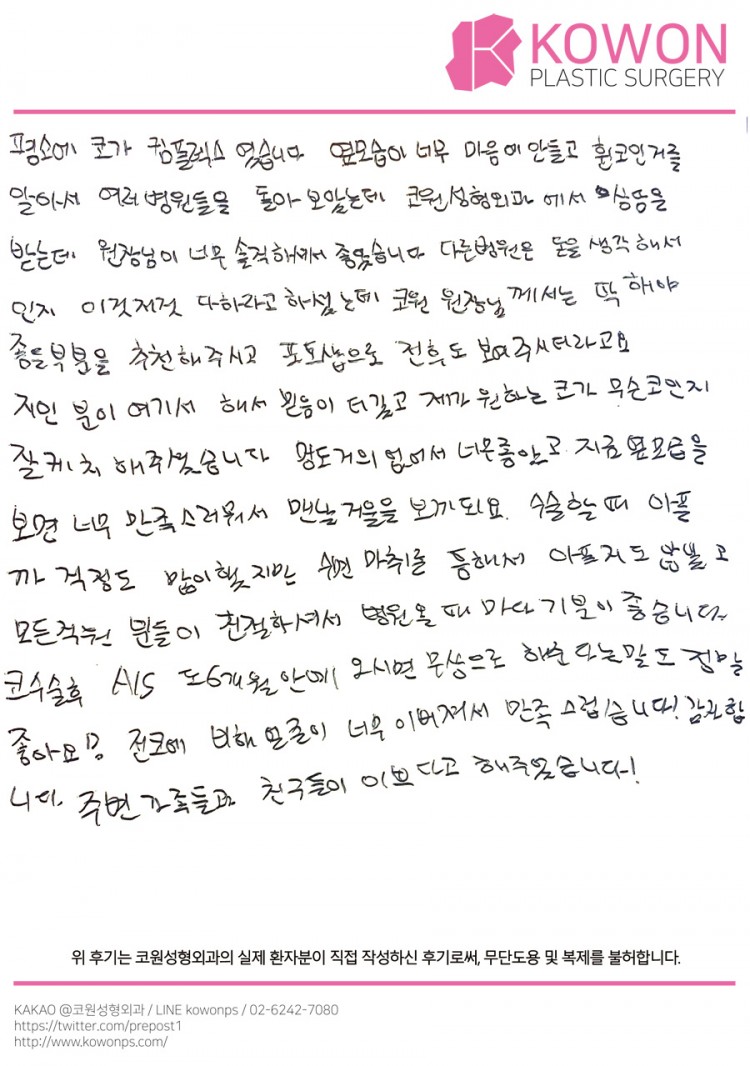 KOWON
PLASTIC SURGERY
평소에 코가 컴플렉스 였습니다 옆모습이 너무 마음에 안들고 휜코인거를
알아서 여러병원들을 돌아 보았는데 코원성형외과 에서 상담을
받는데 원장님이 너무 솔직해서 좋았습니다 다른병원은 돈을 생각해서
인지 이것저것 다하라고 하셨는데 코원 원장님께서는 딱 해야
좋을부분을 추천해주시고 포토샵으로 전후도 보여주시더라고요
지인 분이 여기서 해서 믿음이 더갔고 제가 원하는 코가 무슨코인지
잘케치 해주셨습니다 멍도거의 없어서 너무좋았고 지금 옆모습을
보면 너무 만족스러워서 맨날 거울을 보게되요. 수술할때 아플
까 걱정도 많이했지만 수면 마취를 통해서 아프지도 않았고
모든직원 분들이 친절하셔서 병원올 때 마다 기분이 좋습니다.
코수술후 A/S 도 6개월안에 오시면 무상으로 해준다는말도 정말
좋아요!! 전코에 비해 얼굴이 너무 이뻐져서 만족 스럽습니다! 감사합
니다. 주변 가족들과 친구들이 이쁘다고 해주었습니다!
위 후기는 코원성형외과의 실제 환자분이 직접 작성하신 후기로써, 무단도용 및 복제를 불허합니다.
KAKAO @코원성형외과 / LINE kowonps / 02-6242-7080
https://twitter.com/prepost1
http://www.kowonps.com/